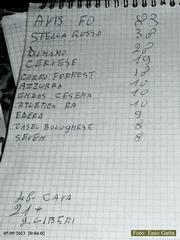 AVIS FO 83
STELLA ROSSA 38
DINAMO 28
CERVESE 19
CORRI FORREST 18
AZZURRA 10
ENDAS CESENA 10
ATLETICA RA 10
EDERA 9
CASEL BOLOGNESE 8
SEVEN 8
48 CAVA
21 +
9 LIBERI
05/09/2013 20:04:02
Foto: Enzo Gatta